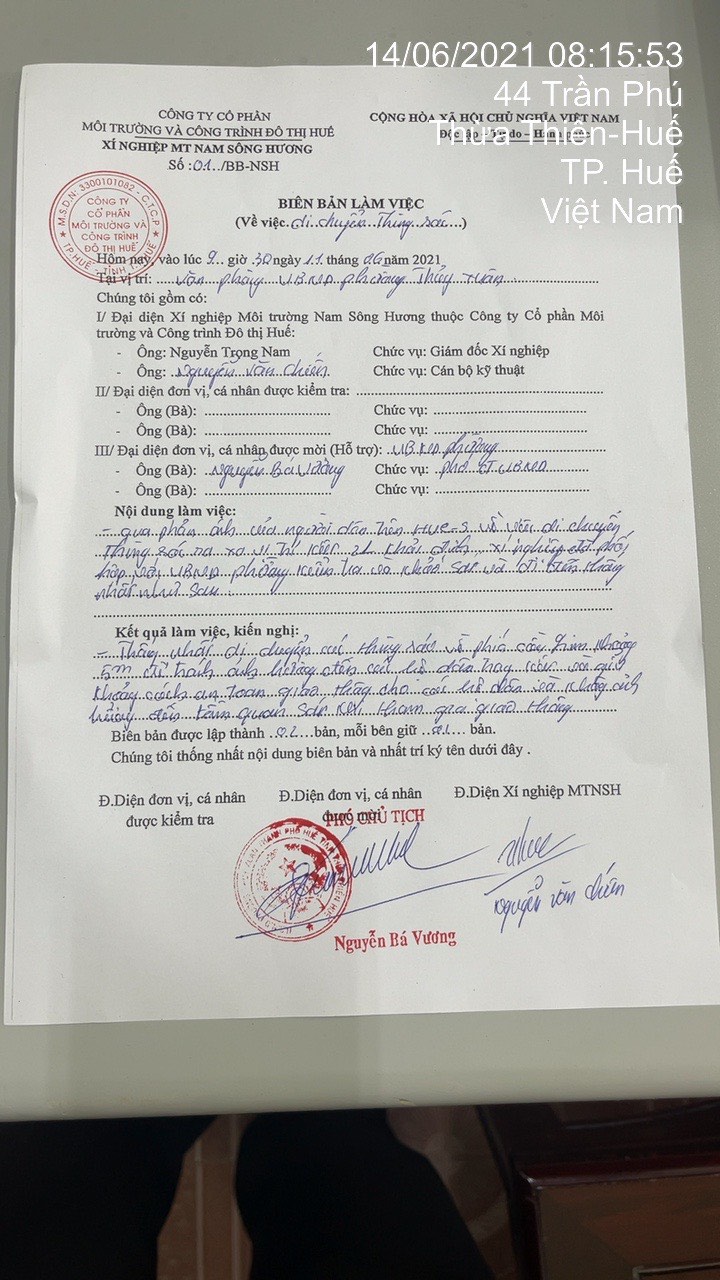 14/06/2021 08:15:53
44 Trần Phú
Thừa Thiên-Huế
TP. Huế
Việt Nam
CÔNG TY CỔ PHẦN
MÔI TRƯỜNG VÀ CÔNG TRÌNH ĐÔ THỊ HUẾ
XÍ NGHIỆP MT NAM SÔNG HƯƠNG
Số :01../BB-NSH
CỘNG HÒA XÃ HỘI CHỦ NGHĨA VIỆT NAM
Độc lập – Tự do – Hạnh phúc
M.S.D.N: 3300101082 - C.T.C.P
CÔNG TY
CỔ PHẦN
MÔI TRƯỜNG VÀ
CÔNG TRÌNH
ĐÔ THỊ HUẾ
TP.HUẾ - TỈNH T.T.HUẾ
BIÊN BẢN LÀM VIỆC
(Về việc. di chuyển Thùng rác...)
Hôm nay, vào lúc 9.. giờ 30 ngày 11 tháng 06 năm 2021
Tại vị trí: .... Văn phòng UBND phường Thủy Xuân
Chúng tôi gồm có:
I/ Đại diện Xí nghiệp Môi trường Nam Sông Hương thuộc Công ty Cổ phần Môi
trường và Công trình Đô thị Huế:
- Ông: Nguyễn Trọng Nam Chức vụ: Giám đốc Xí nghiệp
- Ông: Nguyễn Văn Chiến Chức vụ: Cán bộ kỹ thuật
II/ Đại diện đơn vị, cá nhân được kiểm tra: ........
- Ông (Bà): ........ Chức vụ: ........
- Ông (Bà): ........ Chức vụ: ........
III/ Đại diện đơn vị, cá nhân được mời (Hỗ trợ): UBND phường
- Ông (Bà): Nguyễn Bá Vương Chức vụ: phó CT UBND
- Ông (Bà): ........ Chức vụ: ........
Nội dung làm việc:
- qua phản ánh của người dân trên HUE-S về việc di chuyển
Thùng rác ra xa vị trí 21 Khải định xí nghiệp đã phối
hợp với UBND phường kiểm tra và khảo sát và đi đến thống
nhất như sau
Kết quả làm việc, kiến nghị:
- Thống nhất di chuyển các thùng rác về phía khoảng
5m để tránh ảnh hưởng đến các hộ dân và giữ
khoảng cách an toàn giao thông cho các hộ dân và không ảnh
hưởng đến tầm quan sát khi tham gia giao thông
Biên bản được lập thành ..02... bản, mỗi bên giữ ..01... bản.
Chúng tôi thống nhất nội dung biên bản và nhất trí ký tên dưới đây .
Đ.Diện đơn vị, cá nhân
được kiểm tra
Đ.Diện đơn vị, cá nhân
được mời
PHÓ CHỦ TỊCH
Nguyễn Bá Vương
Đ.Diện Xí nghiệp MTNSH
Nguyễn Văn Chiến